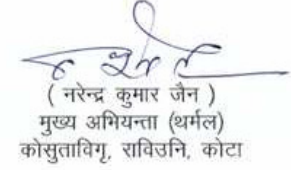 ( नरेन्द्र कुमार जैन )
मुख्य अभियन्ता (थर्मल)
कोसुताविगृ, राविउनि, कोटा